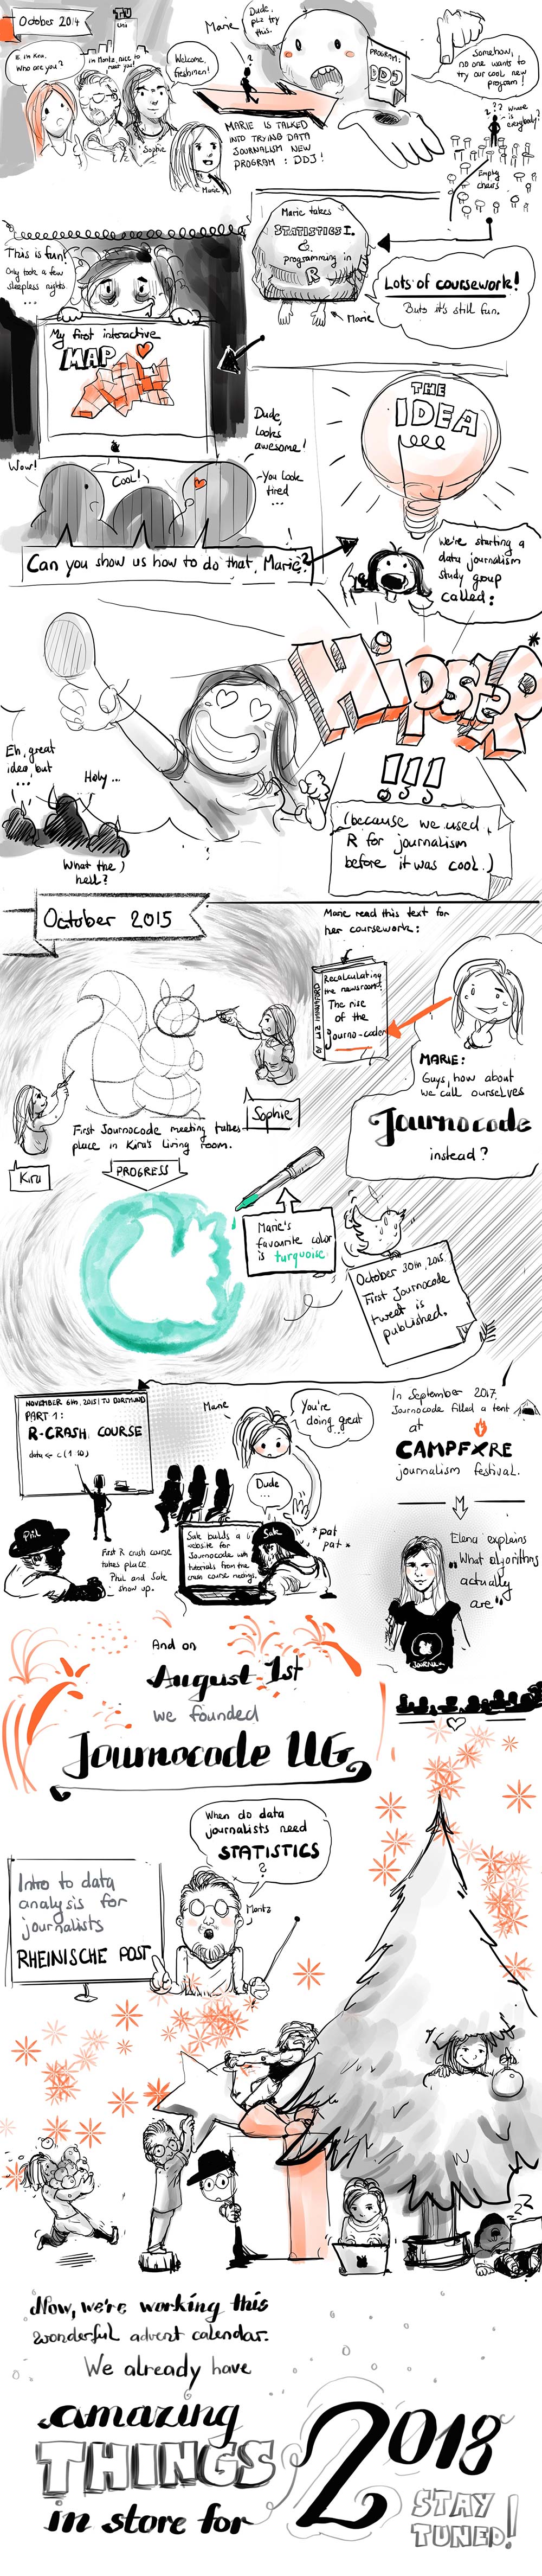 October 2014
TU
Uni
Hi, I'm Kira.
Who are you?
I'm Moritz, nice to
meet you!
Welcome,
freshmen!
Sophie
Marie
Marie
?
Dude,
plz try
this.
PROGRAM:
DDJ
MARIE IS TALKED
INTO TRYING DATA
JOURNALISM NEW
PROGRAM: DDJ!
Somehow,
no one wants to
try our cool new
program!
? ? ?
Where
is
everybody?
Empty
chairs
Marie takes
STATISTICS I.
&
programming in
R
Marie
Lots of coursework!
But it's still fun.
This is fun!
Only took a few
sleepless nights
...
My first interactive
MAP
Wow!
Cool!
Dude,
looks
awesome!
-You look
tired
...
Can you show us how to do that, Marie?
THE
IDEA
We're starting a
data journalism
study group
called:
HipsteR*
!!!
Eh, great
idea, but
...
Holy ...
What the
hell?
(because we used
R for journalism
before it was cool.)
October 2015
Marie read this text for
her coursework:
Recalculating
the newsroom:
The rise
of the
Journo-coder
MARIE:
Guys, how about
we call ourselves
Journocode
instead?
Sophie
Kira
First Journocode meeting takes
place in Kira's living room.
PROGRESS
Marie's
favourite color
is turquoise.
October 30th, 2015.
First Journocode
tweet is
published.
NOVEMBER 6TH, 2015 | TU DORTMUND
PART 1:
R-CRASH COURSE
data <- c(1:10)
Marie
You're
doing great
Dude
...
Phil
First R crush course
takes place
Phil and Sak
show up.
Sak builds a
website for
Journocode with
tutorials from the
crash course meetings.
Sak
*pat
pat*
In September 2017,
Journocode filled a tent
at
CAMPFXRE
journalism festival.
Elena explains
"What algorithms
actually
are"
And on
August 1st
we founded
Journocode UG
When do data
journalists need
STATISTICS
?
Moritz
Intro to data
analysis for
journalists
RHEINISCHE POST
z z z
Now, we're working this
wonderful advent calendar.
We already have
amazing
THINGS
in store for
2018
STAY
TUNED!